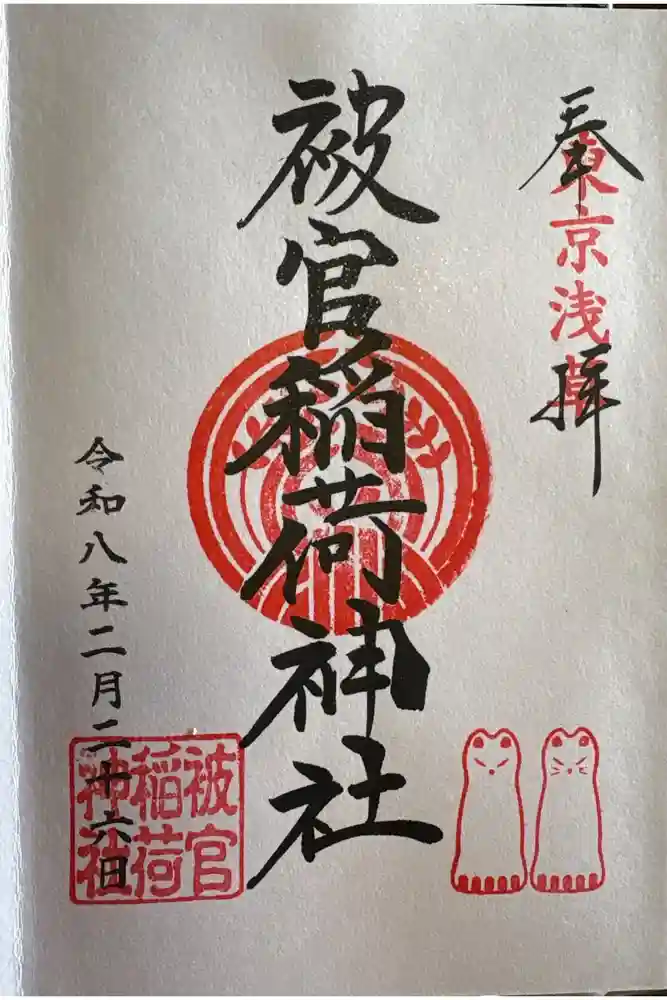 奉拝
東京浅草
被官稲荷神社
令和八年二月二十六日
被官
稲荷
神社